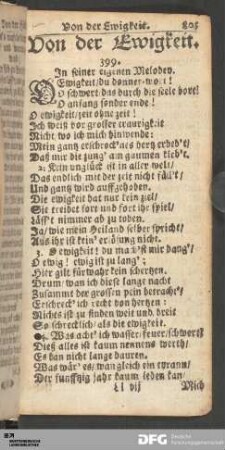 Von der Ewigkeit. 805
Von der Ewigkeit.
399.
In seiner eigenen Melodey.
O Ewigkeit/du donner-wort!
O schwert das durch die seele bort!
O anfang sonder ende!
O ewigkeit/zeit ohne zeit!
Ich weiß vor grosser traurigkeit
Nicht wo ich mich hinwende:
Mein gantz erschrock'nes hertz erbeb't/
Daß mir die zung' am gaumen kleb't.
2. Kein unglück ist in aller welt/
Das endlich mit der zeit nicht fäll't/
Und gantz wird auffgehoben.
Die ewigkeit hat nur kein ziel/
Sie treibet fort und fort ihr spiel/
Läss't nimmer ab zu toben.
Ja/wie mein Heiland selber spricht/
Aus ihr ist kein' erlösung nicht.
3. O ewigkeit! du mach'st mir bang'/
O ewig! ewig ist zu lang';
Hier gilt fürwahr kein schertzen.
Drum/wan ich diese lange nacht
Zusammt der grossen pein betracht'/
Erschreck' ich recht von hertzen:
Nichts ist zu finden weit und breit
So schrecklich/als die ewigkeit.
4. Was acht' ich wasser/feuer/schwert?
Dieß alles ist kaum nennens werth/
Es kan nicht lange dauren.
Was wär' es/wan gleich ein tyrann/
Der funffzig jahr kaum leben kan/
Ll vij Mich
DFG Deutsche
Forschungsgemeinschaft